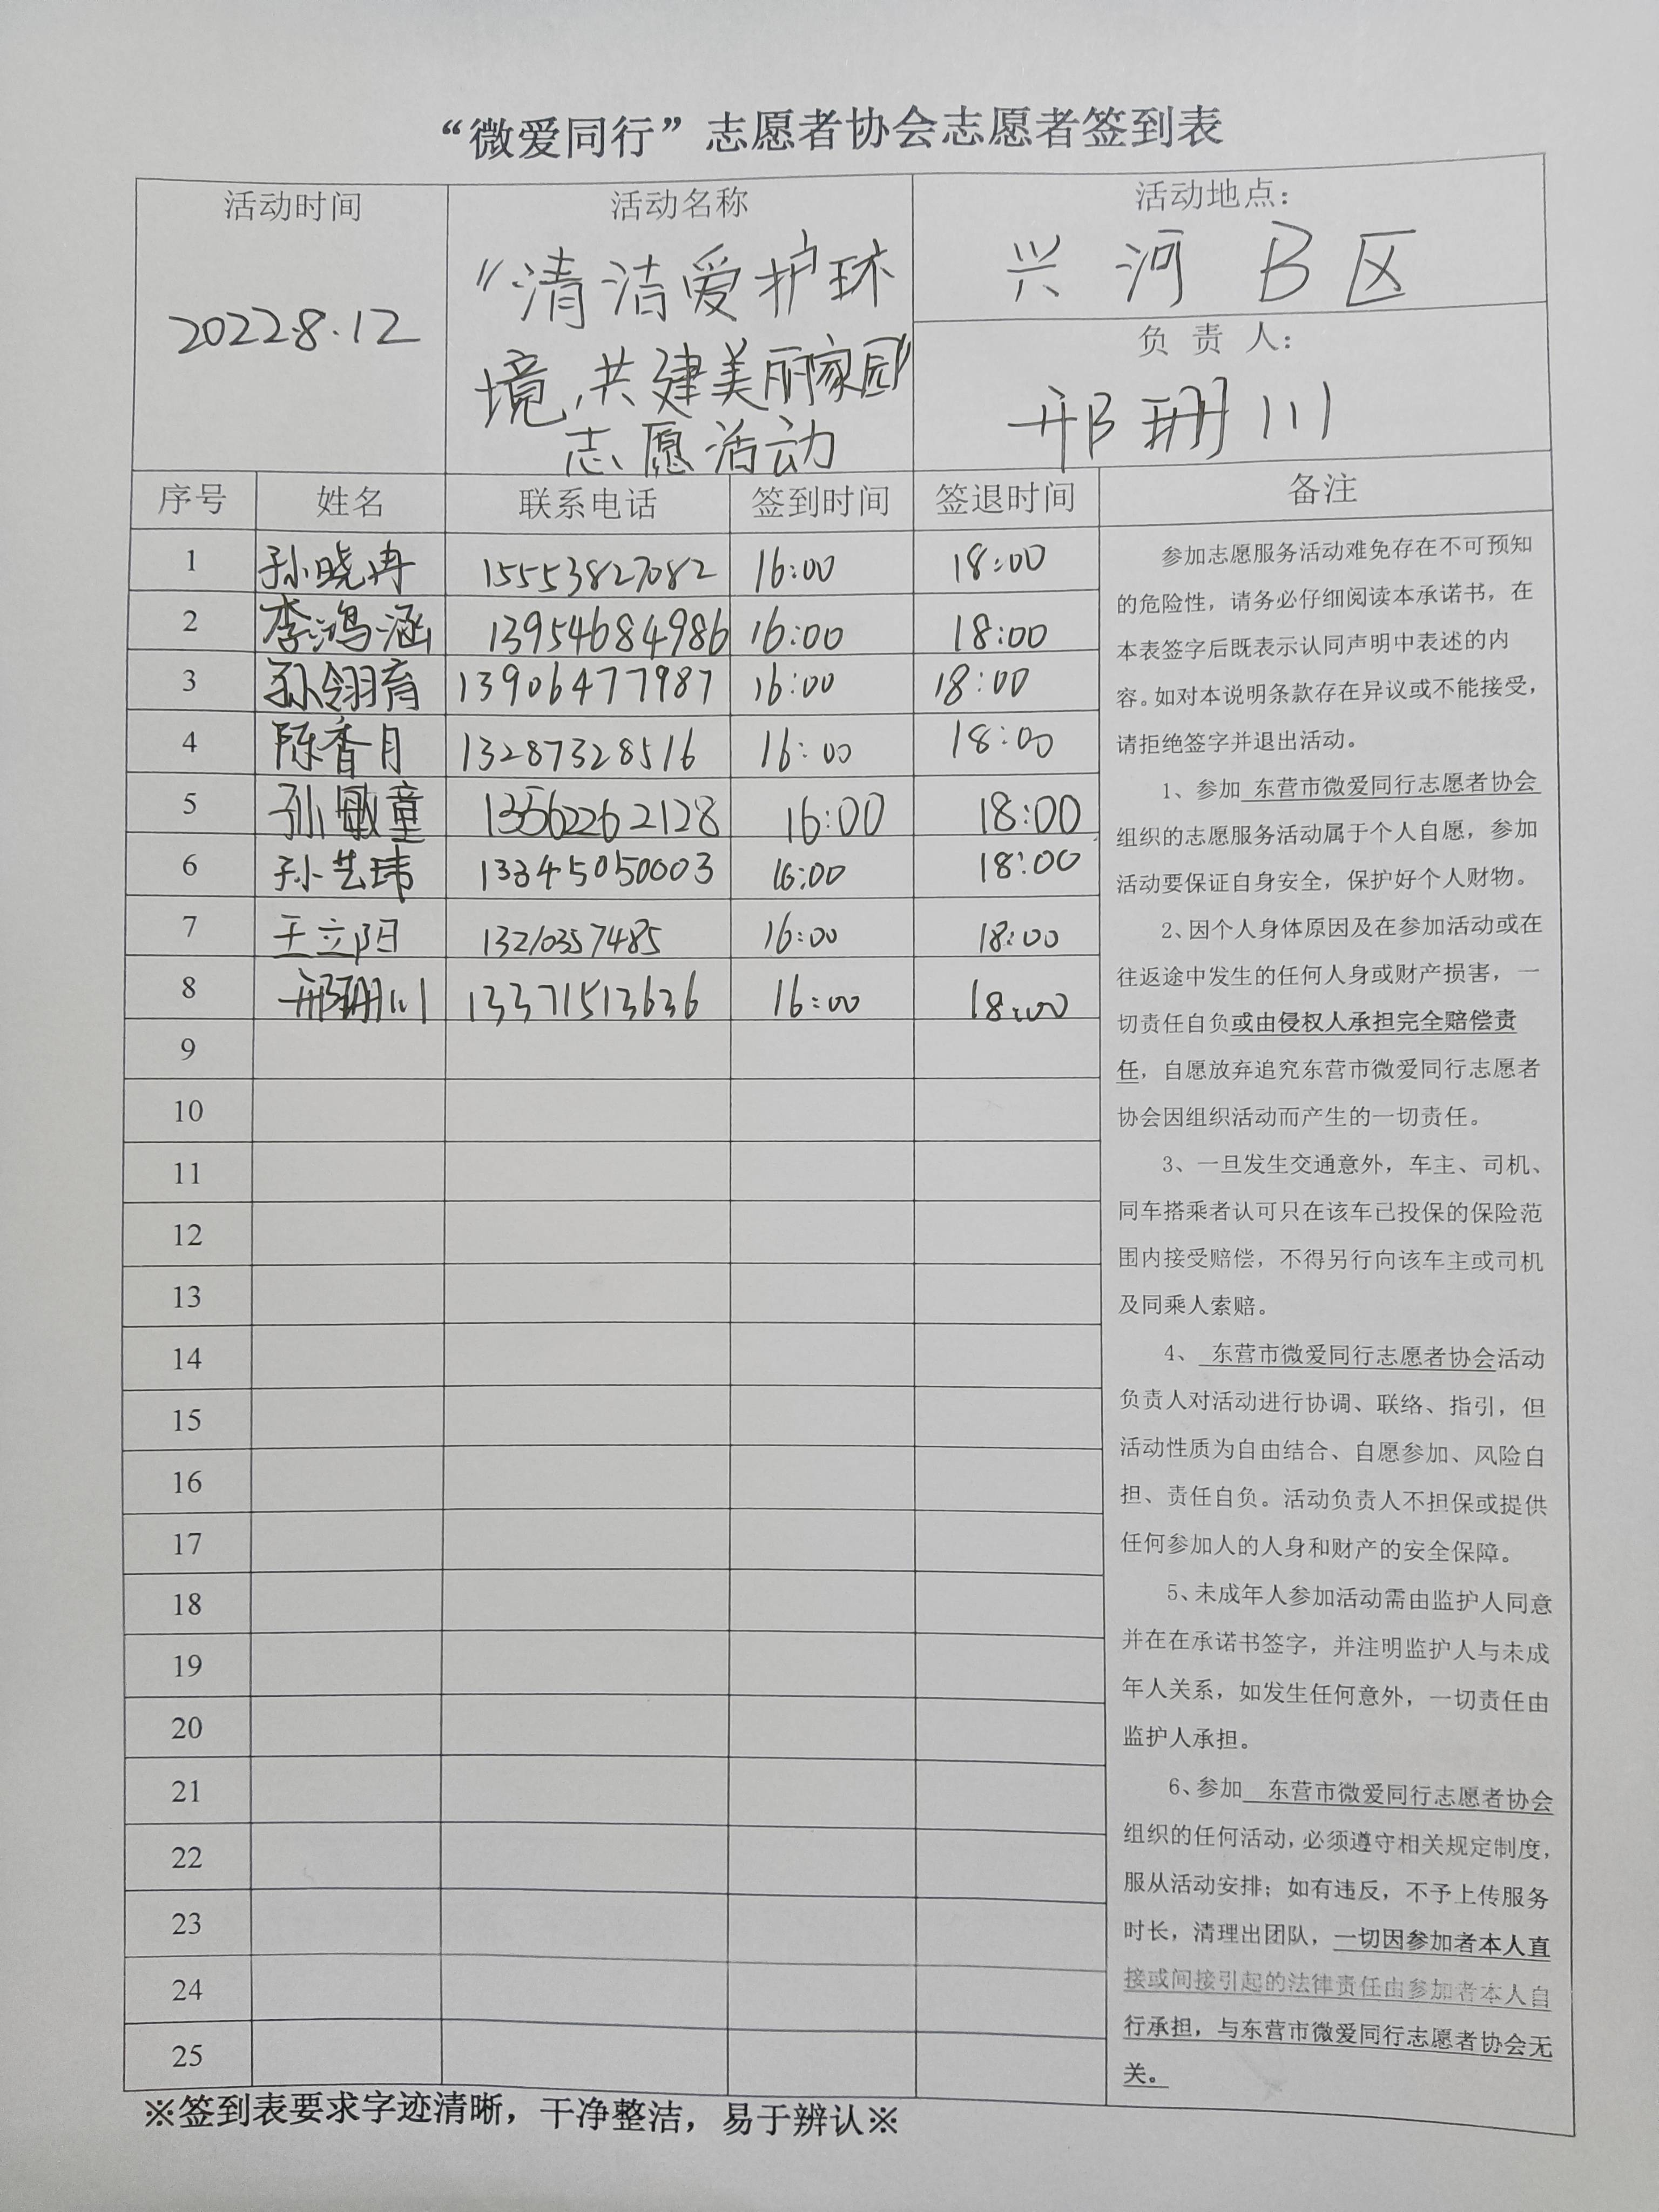 “微爱同行”志愿者协会志愿者签到表
活动时间
2022.8.12
活动名称
“清洁爱护环
境,共建美丽家园”
志愿活动
活动地点：
兴河B区
负责人：
邢珊川
序号 姓名 联系电话 签到时间 签退时间 备注
1 孙晓冉 15553827082 16:00 18:00
2 李鸿涵 13954684986 16:00 18:00
3 孙翎育 13906477987 16:00 18:00
4 陈香月 13287328516 16:00 18:00
5 孙敏童 13562262128 16:00 18:00
6 孙艺玮 13345050003 16:00 18:00
7 王立阳 13210357485 16:00 18:00
8 邢珊川 13371513636 16:00 18:00
9
10
11
12
13
14
15
16
17
18
19
20
21
22
23
24
25
参加志愿服务活动难免存在不可预知
的危险性，请务必仔细阅读本承诺书，在
本表签字后既表示认同声明中表述的内
容。如对本说明条款存在异议或不能接受，
请拒绝签字并退出活动。
1、参加 东营市微爱同行志愿者协会
组织的志愿服务活动属于个人自愿，参加
活动要保证自身安全，保护好个人财物。
2、因个人身体原因及在参加活动或在
往返途中发生的任何人身或财产损害，一
切责任自负或由侵权人承担完全赔偿责
任，自愿放弃追究东营市微爱同行志愿者
协会因组织活动而产生的一切责任。
3、一旦发生交通意外，车主、司机、
同车搭乘者认可只在该车已投保的保险范
围内接受赔偿，不得另行向该车主或司机
及同乘人索赔。
4、 东营市微爱同行志愿者协会活动
负责人对活动进行协调、联络、指引，但
活动性质为自由结合、自愿参加、风险自
担、责任自负。活动负责人不担保或提供
任何参加人的人身和财产的安全保障。
5、未成年人参加活动需由监护人同意
并在在承诺书签字，并注明监护人与未成
年人关系，如发生任何意外，一切责任由
监护人承担。
6、参加 东营市微爱同行志愿者协会
组织的任何活动，必须遵守相关规定制度，
服从活动安排；如有违反，不予上传服务
时长，清理出团队，一切因参加者本人直
接或间接引起的法律责任由参加者本人自
行承担，与东营市微爱同行志愿者协会无
关。
※签到表要求字迹清晰，干净整洁，易于辨认※